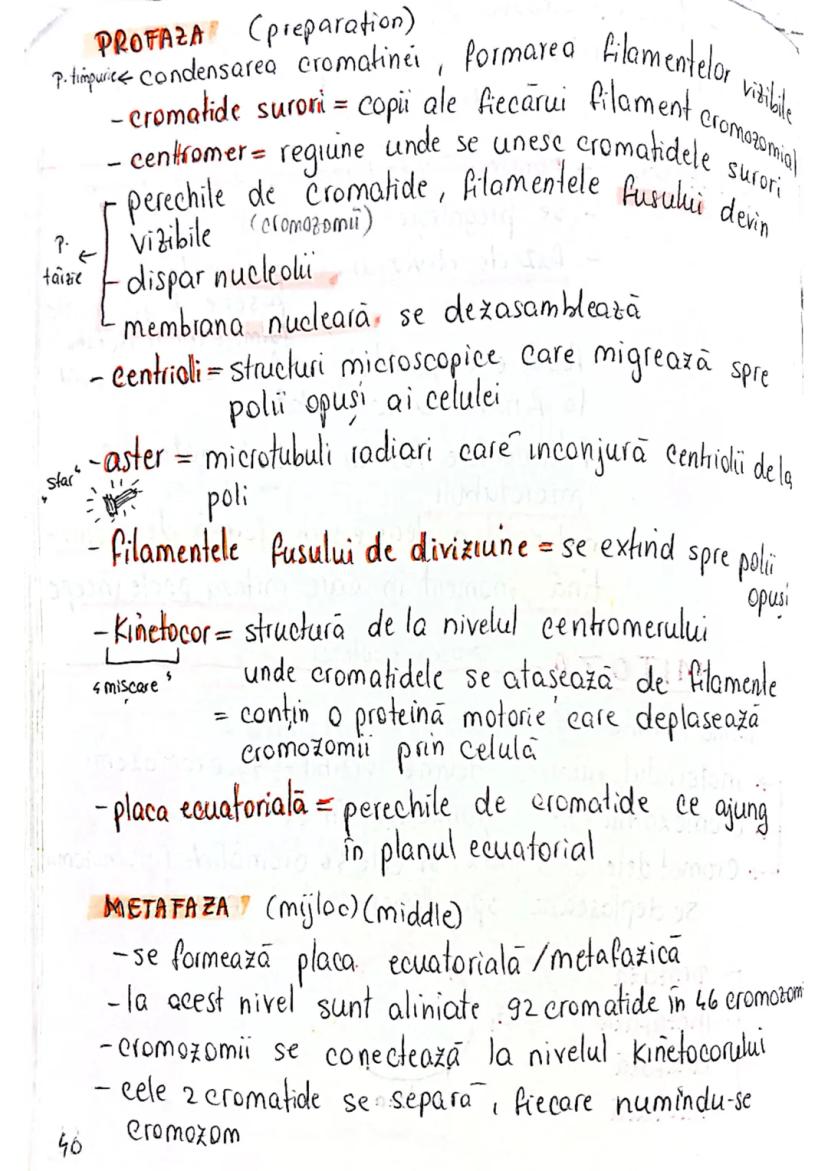 PROFAZA (preparation)
P. timpurie ← condensarea cromatinei, formarea filamentelor vizibile
- cromatide surori = copii ale fiecărui filament cromozomial
- centromer = regiune unde se unesc cromatidele surori
perechile de cromatide, filamentele fusului devin
vizibile (cromozomii)
P. târzie ←
- dispar nucleolii
- membrana nucleară se dezasamblează
- centrioli = structuri microscopice care migrează spre
polii opuși ai celulei
"star" - aster = microtubuli radiari care inconjură centriolii de la
poli
- filamentele fusului de diviziune = se extind spre polii
opuși
- Kinetocor = structură de la nivelul centromerului
"mișcare" unde cromatidele se atasează de filamente
= conțin o proteină motorie care deplasează
cromozomii prin celulă
- placa ecuatorială = perechile de cromatide ce ajung
în planul ecuatorial
METAFAZA (mijloc) (middle)
- se formează placa ecuatorială / metafazică
- la acest nivel sunt aliniate 92 cromatide în 46 cromozom
- cromozomii se conectează la nivelul kinetocorului
- cele 2 cromatide se separă, fiecare numindu-se
cromozom